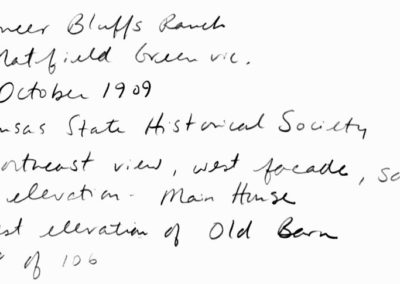 neer Bluffs Ranch
Matfield Green vic.
October 1909
nsas State Historical Society
ortheast view, west facade, so
elevation - Main House
st elevation of Old Barn
of 106